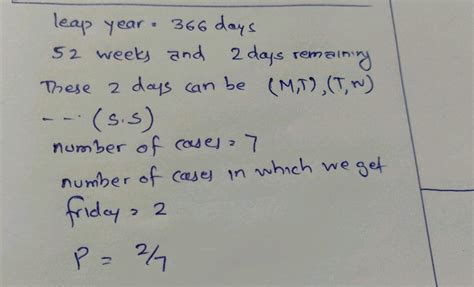 leap year = 366 days
52 weeks and 2 days remaining
These 2 days can be (M,T), (T,W)
--- (S.S)
number of cases = 7
number of cases in which we get
friday = 2
P = 2/7